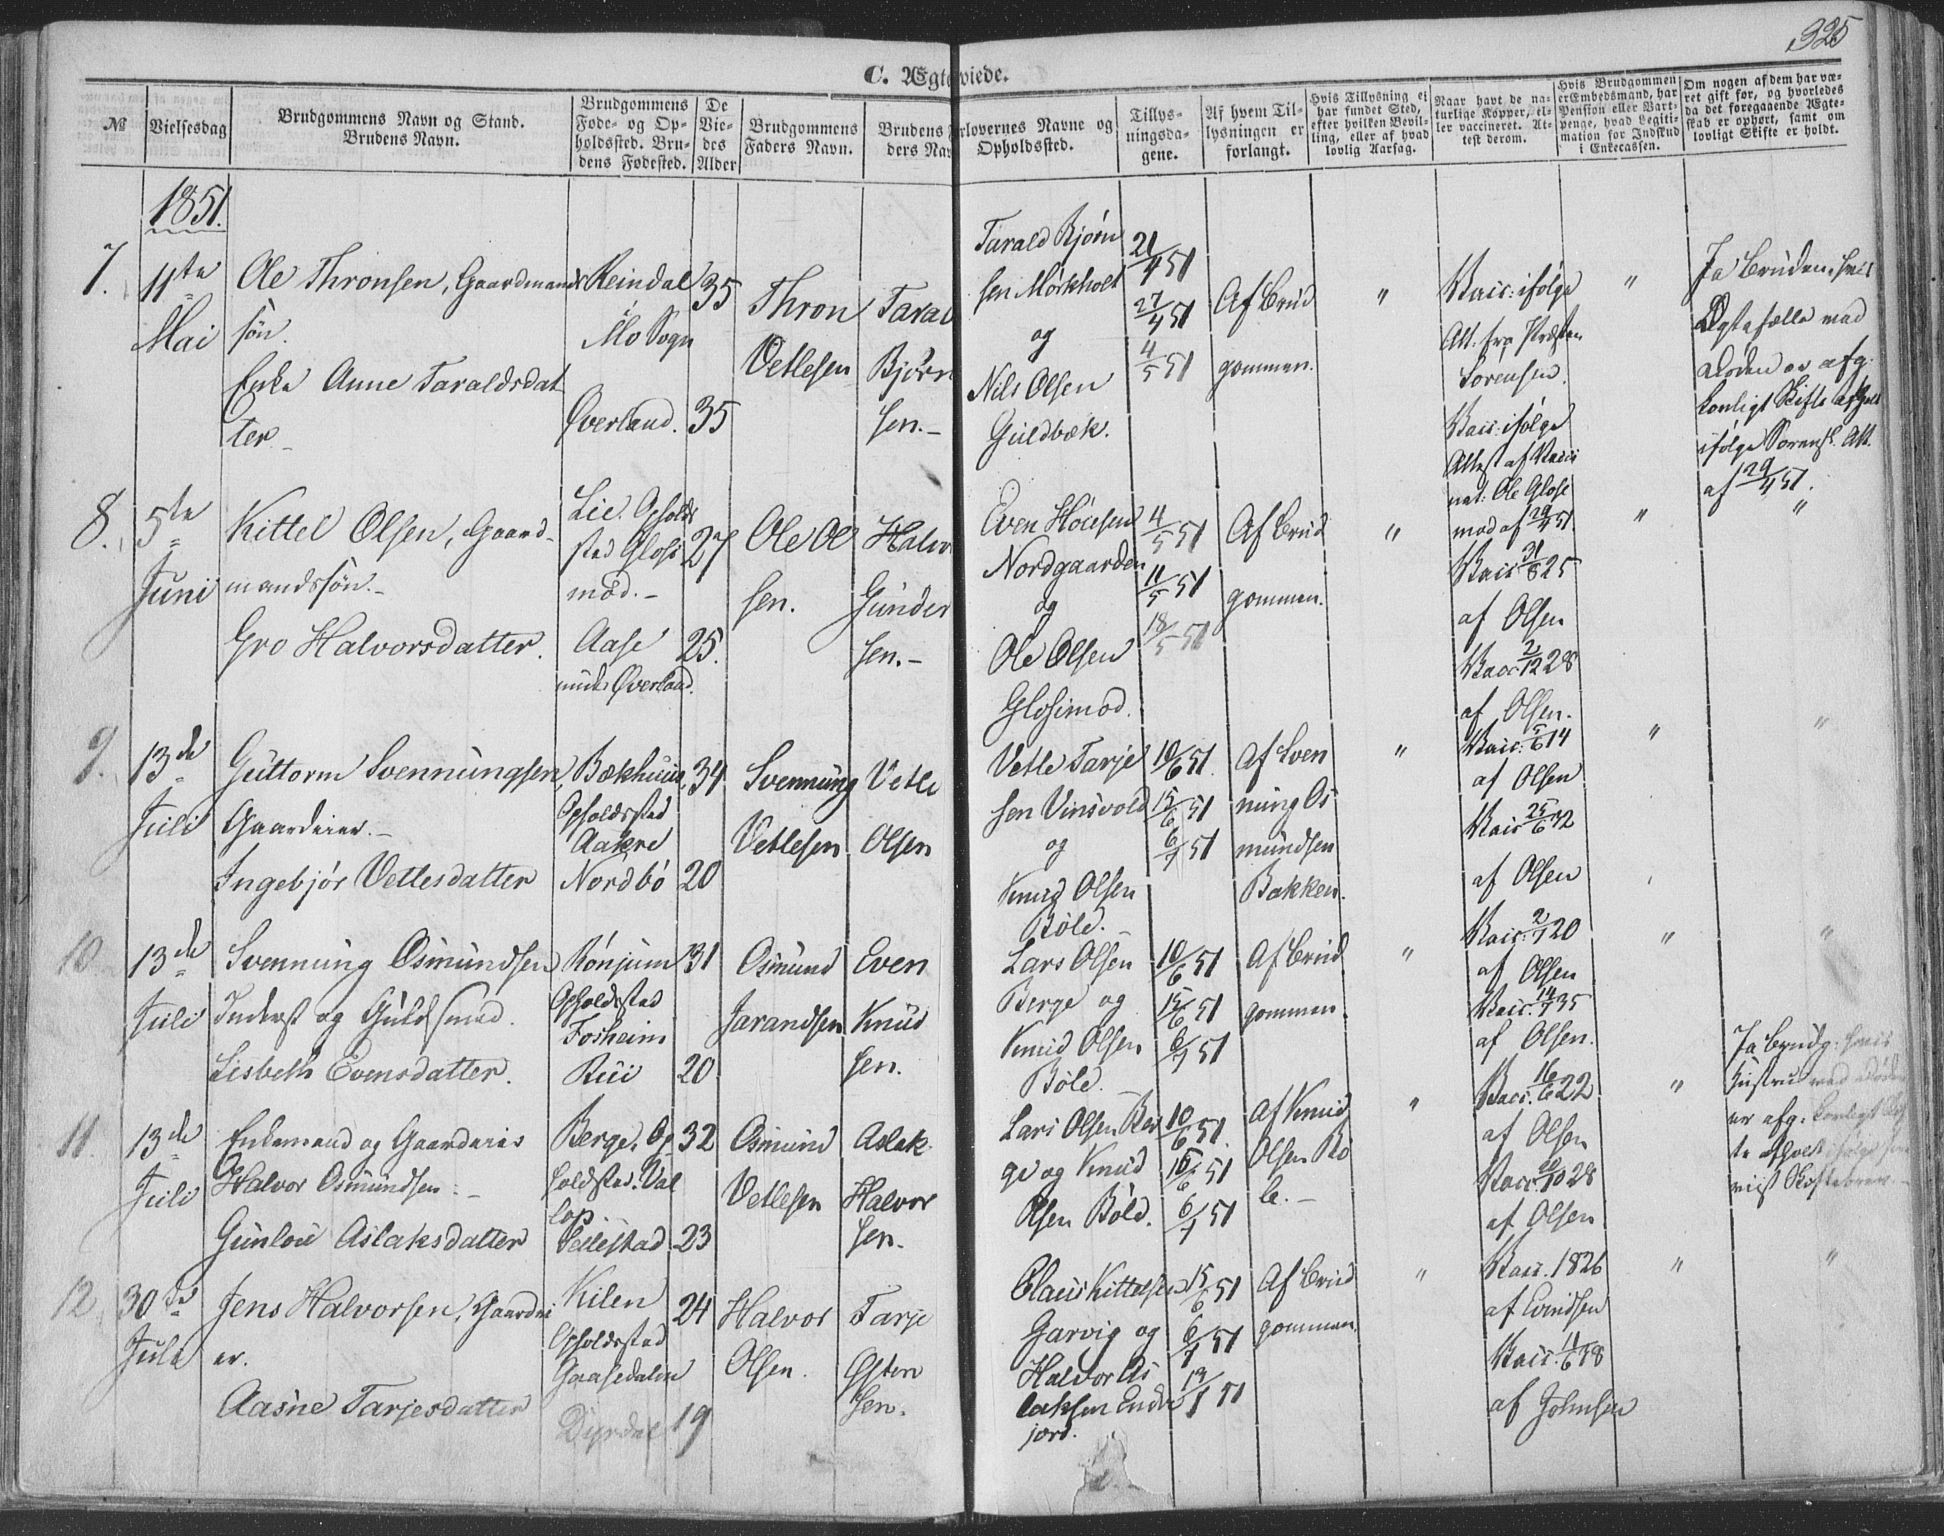 325
C. Ægteviede.
№
Vielsesdag
Brudgommens Navn og Stand.
Brudens Navn.
Brudgommens
Føde- og Op-
holdssted. Bru-
dens Fødested.
De
Vie-
des
Alder
Brudgommens
Faders Navn.
Brudens
ders Nav
Forlovernes Navne og
Opholdssted.
Tillys-
ningsda-
gene.
Af hvem Til-
lysningen er
forlangt.
Hvis Tillysning ei
har fundet Sted,
efter hvilken Bevil-
ling, eller af hvad
lovlig Aarsag.
Naar havt de na-
turlige Kopper, el-
ler vaccineret. At-
test derom.
Hvis Brudgommen
er Embedsmand, har
Pension eller Vart-
penge, hvad Legiti-
mation for Indskud
i Enkecassen.
Om nogen af dem har væ-
ret gift før, og hvorledes
da det foregaaende Ægte-
skab er ophørt, samt om
lovligt Skifte er holdt.
1851.
7.
11te
Mai
Ole Thronsen, Gaardmands
søn.
Enke Anne Taraldsdat
ter
Reindal
Mo Sogn
Øverland.
35
35
Thron
Vetlesen
Taral
Bjørn
sen.
Tarald Bjørn
sen Mørkholt
og
Nils Olsen
Guldbæk.
21/4 51
27/4 51
4/5 51
Af Brud
gommen.
"
Vacc: ifølge
Att. fra Præsten
Sørensen.
Vacc: ifølge
Attest af Vacci
nat: Ole Glose
mod af 29/4 51.
"
Ja Bruden, hvis
Ægtefælle ved
Døden er afg.
Lovligt Skifte afholdt
ifølge Sorensk. Att.
af 29/4 51.
8.
5te
Juni
Kittel Olsen, Gaard-
mandssøn.
Gro Halvorsdatter.
Lie. Opholds
sted Glosi
mod.
Aase
under Øverland.
27
25.
Ole Ol
sen.
Halv
Gunder
sen.
Even Høiesen
Nordgaarden
og
Ole Olsen
Glosimod.
4/5 51
11/5 51
18/5 51
Af Brud
gommen.
"
Vacc 31/8 25
af Olsen
Vacc 2/12 28
af Olsen.
"
"
9.
13de
Juli
Guttorm Svennungsen,
Gaardeier.
Ingebjør Vetlesdatter
Bækhuus,
Opholdssted
Aakre
Nordbø
34
20
Svennung
Vetlesen
Vetle
Olsen
Vetle Tarje
sen Vinsvold
og
Knud Olsen
Bøle.
10/6 51.
15/6 51
6/7 51
Af Sven
nung Os
mundsen
Bakken.
"
Vacc. 5/6 14
af Olsen
Vacc 25/6 32
af Olsen
"
"
10
13de
Juli
Svennung Osmundsen
Inderst og Guldsmed.
Lisbeth Evensdatter.
Rønjum
Opholdssted
Fosheim
Rui
31
20
Osmund
Jarandsen
Even
Knud
sen.
Lars Olsen
Berge og
Knud Olsen
Bøle.
10/6 51
15/6 51
6/7 51
Af Brud
gommen.
"
Vacc: 2/7 20
af Olsen
Vacc. 14/7 35
af Olsen.
"
"
11.
13de
Juli
Enkemand og Gaardeier
Halvor Osmundsen.
Gunlou Aslaksdatter
Berge. Op
holdsted. Val
32
23
Osmund
Vetlesen
Aslak
Halvor
sen.
Lars Olsen Ber
ge og Knud
Olsen Bøle.
10/6 51.
15/6 51
6/7 51
Af Knud
Olsen Bø
le.
"
Vacc. 16/6 22
af Olsen
af Olsen
"
Ja Brudg. hvis
Hustru ved Døden
er afg. Lovligt Skif
te afholdt ifølge fore
viist Skiftebrev.
12
30te
Jule
Jens Halvorsen, Gaardei
er.
Aasne Tarjesdatter
Kilen
Opholdssted
Gaasedalen
Dyrdal
24
19
Halvor
Olsen.
Tarje
Østen
sen.
Claus Kittelsen
Garvig og
Halvor As
laksen Endre
jord.
15/6 51
6/7 51
13/7 51
Af Brud
gommen.
"
Vacc. 1826
af Evindsen
af Johnsen
"
"